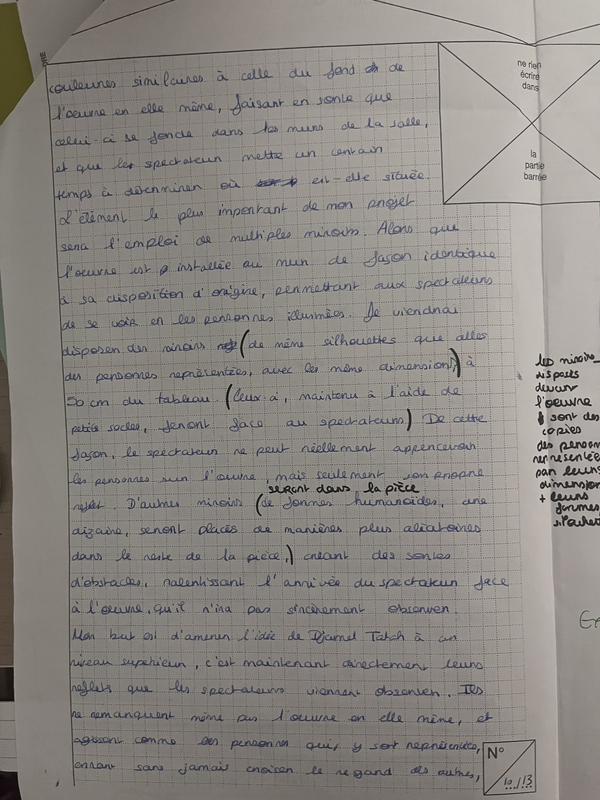 ne rien
écrire
dans
la
partie
barrée
couleurs similaires à celle du fond de
l'œuvre en elle même, faisant en sorte que
celui-ci se fonde dans les murs de la salle,
et que le spectateur mette un certain
temps à déterminer où est-elle située.
L'élément le plus important de mon projet
sera l'emploi de multiples miroirs. Alors que
l'œuvre est installée au mur de façon identique
à sa disposition d'origine, permettant aux spectateurs
de se voir en les personnes illustrées. Je viendrai
disposer des miroirs (de même silhouettes que celles
des personnes représentées, avec les même dimensions) à
50 cm du tableau. (Ceux-ci, maintenu à l'aide de
petits socles, feront face au spectateurs) De cette
façon, le spectateur ne peut réellement apercevoir
les personnes sur l'œuvre, mais seulement son propre
reflet. D'autres miroirs (de formes humanoïdes, une
seront dans la pièce
dizaine, seront placés de manières plus aléatoires
dans le reste de la pièce,) créant des sortes
d'obstacles, ralentissant l'arrivée du spectateur face
à l'œuvre, qu'il n'ira pas sincèrement observer.
Mon but est d'amener l'idée de Djamel Tatah à un
niveau supérieur, c'est maintenant directement leurs
reflets que les spectateurs viennent observer. Ils
ne remarquent même pas l'œuvre en elle même, et
agissent comme les personnes qui y sont représentées,
errant sans jamais croiser le regard des autres,
les miroirs
disposés
devant
l'œuvre
sont des
copies
des person
représentées
par leurs
dimension
+ leurs
formes
N°
10/13